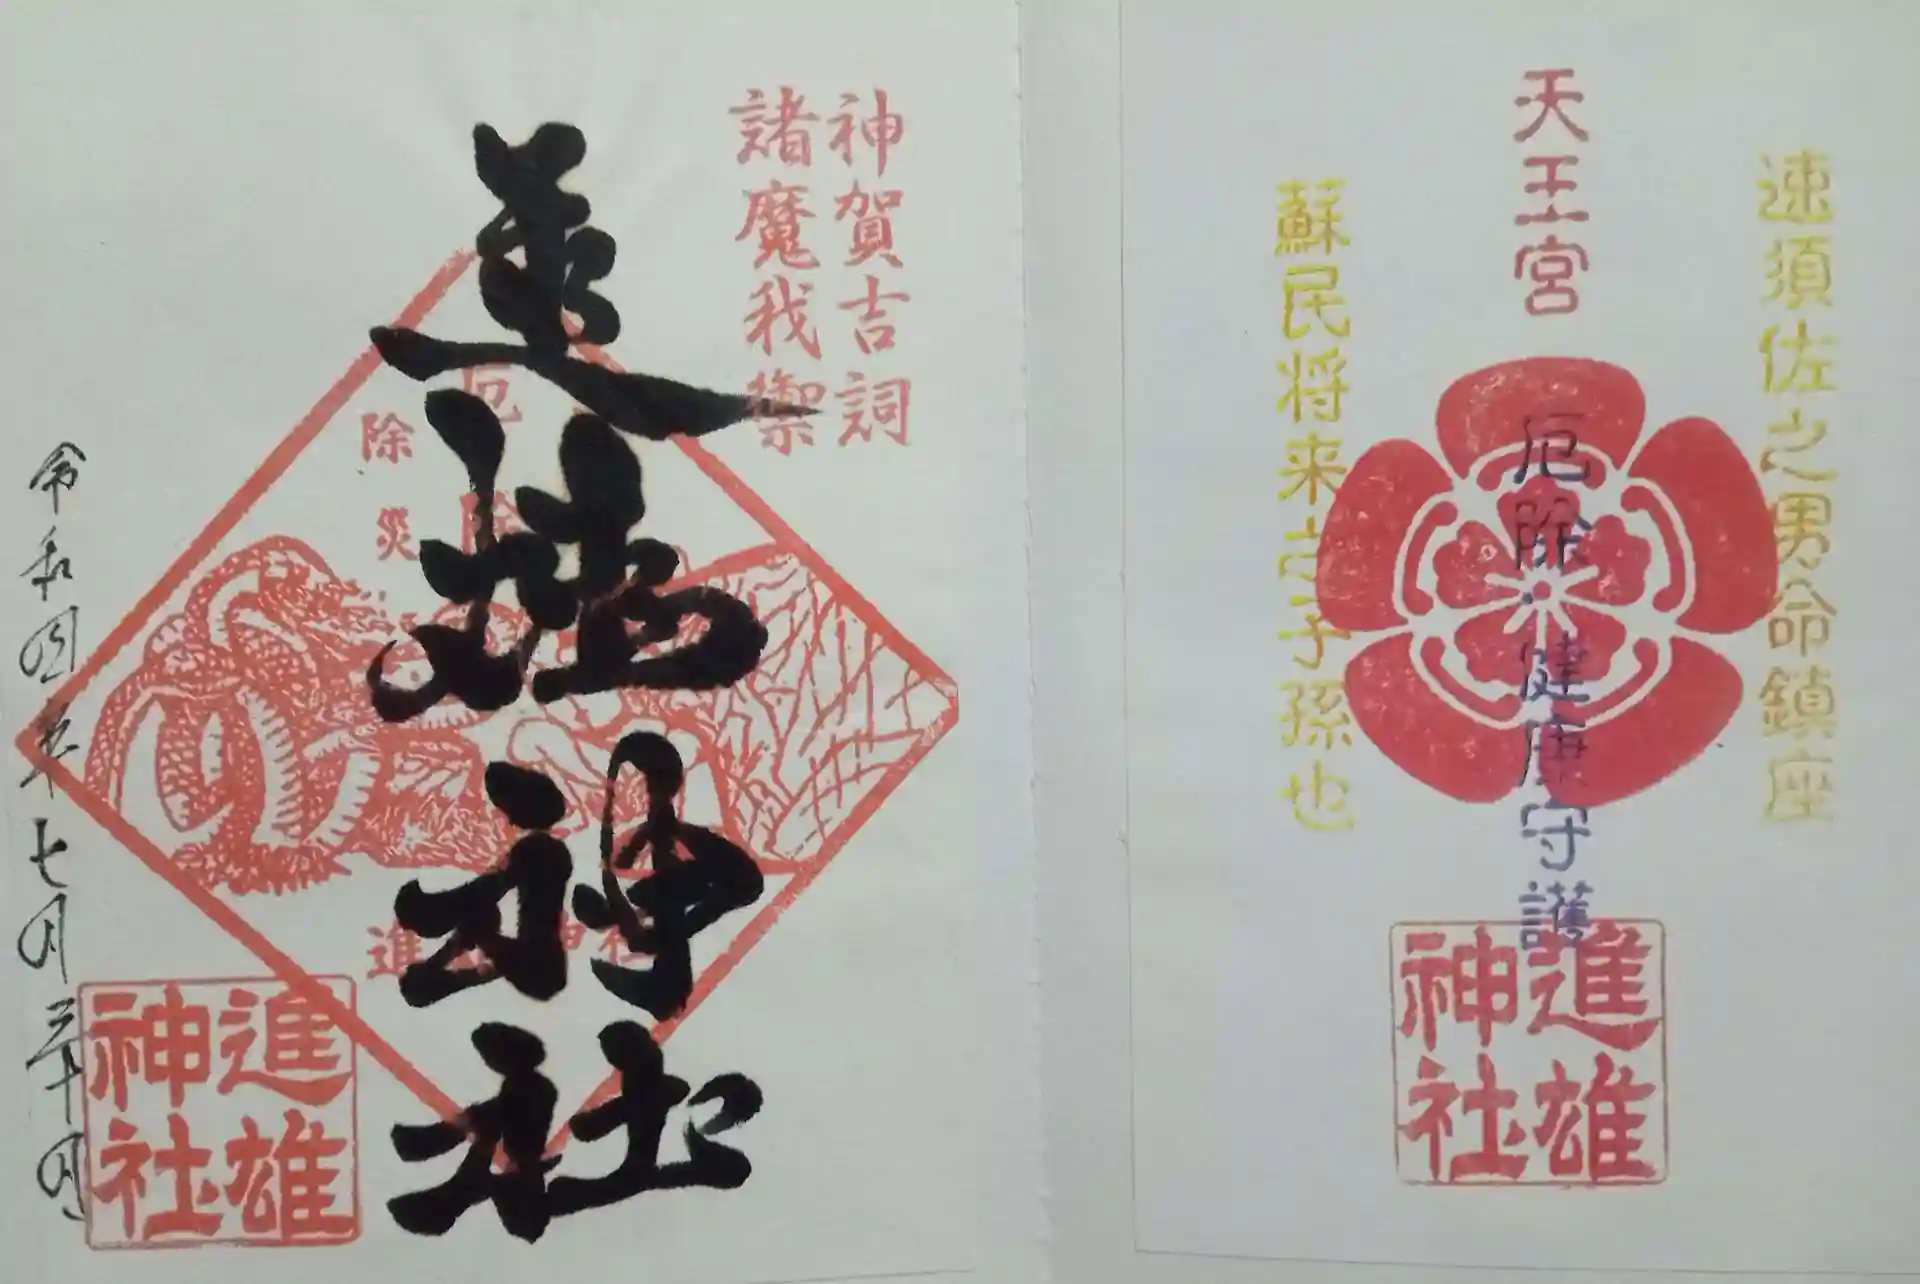 速須佐之男命鎮座
天王宮
厄除・健康守護
進雄
神社
蘇民将来之子孫也
神賀吉詞
諸魔我禦
進雄神社
厄除
除災
令和四年七月三十日
進雄
神社